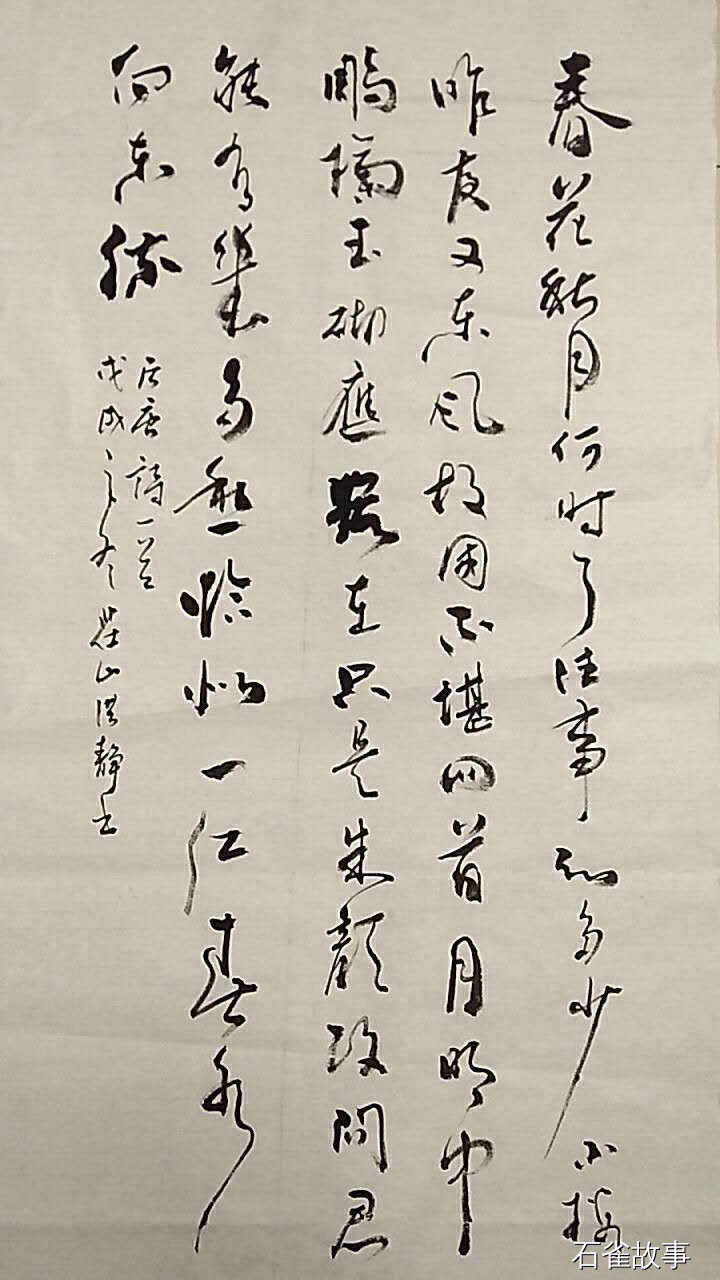 春花秋月何时了往事知多少小楼
昨夜又东风故国不堪回首月明中
鵰欄玉砌應犹在只是朱颜改问君
能有幾多愁恰似一江春水
向东流
后唐詩一首
戊戌之冬山洪静书
石雀故事